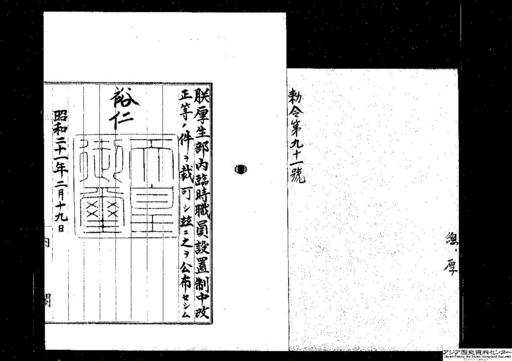 勅令第九十一號
朕厚生部內臨時職員設置制中改
正等ノ件ヲ裁可シ茲ニ之ヲ公布セシム
裕仁
天皇御璽
昭和二十一年二月十九日
内閣
アジア歴史資料センター